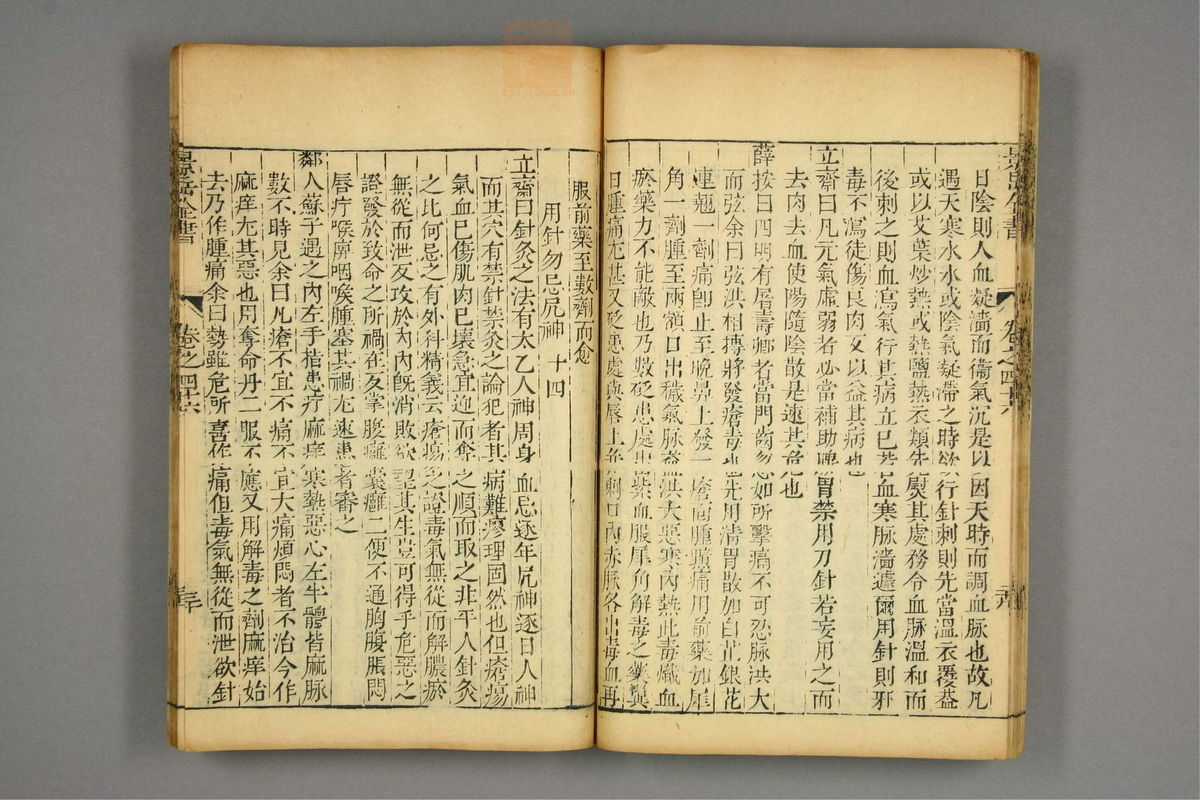 景岳全書
卷之四十六
日陰則人血凝濇而衞氣沉是以因天時而調血脉也故凡
遇天寒水冰或陰氣凝滯之時欲行針刺則先當溫衣覆蓋
或以艾葉炒熱或熱鹽熱衣類先熨其處務令血脉溫和而
後刺之則血瀉氣行其病立已若血寒脉濇遽爾用針則邪
毒不瀉徒傷良肉又以益其病也
立齋曰凡元氣虛弱者必當補助脾胃禁用刀針若妄用之而
去肉去血使陽隨陰散是速其危也
薛按曰四明有屠壽卿者當門齒忽如所擊痛不可忍脉洪大
而弦余曰弦洪相搏將發瘡毒也先用清胃散加白芷銀花
連翹一劑痛卽止至晚鼻上發一瘡面腫黯痛用前藥加犀
角一劑腫至兩額口出穢氣脉益洪大惡寒內熱此毒熾血
瘀藥力不能敵也乃數砭患處出紫血服犀角解毒之藥與
日腫痛尤甚又砭患處與唇上并刺口內赤脉各出毒血再
服前藥至數劑而愈
用針勿忌尻神 十四
立齋曰針灸之法有太乙人神周身血忌逐年尻神逐日人神
而其穴有禁針禁灸之論犯者其病難瘳理固然也但瘡瘍
氣血已傷肌肉已壞急宜迎而奪之順而取之非平人針灸
之比何忌之有外科精義云瘡瘍之證毒氣無從而解膿瘀
無從而泄反攻於內內旣消敗欲望其生豈可得乎危惡之
證發於致命之所禍在反掌腹癰囊癰二便不通胸腹脹悶
唇疔喉屏咽喉腫塞其禍尤速患者審之
鄰人蘇子遇之內左手指患疔麻痒寒熱惡心左半體皆麻脉
數不時見余曰凡瘡不宜不痛不宜大痛煩悶者不治今作
麻痒尤其惡也用奪命丹二服不應又用解毒之劑麻痒始
去乃作腫痛余曰勢雖危所喜作痛但毒氣無從而泄欲針
景岳全書
卷之四十六